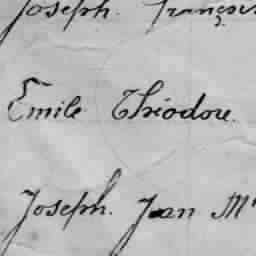 Joseph. François
Emile Théodore.
Joseph. Jean M